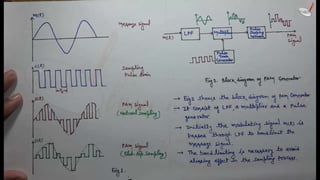 m(t)
Message Signal
c(t)
Sampling
Pulse train
s(t)
PAM Signal
(Natural Sampling)
s(t)
PAM Signal
(Flat-top Sampling)
Fig 1.
m(t)
LPF
Multiplier
PAM
Signal
Pulse Train
Generator
Fig 2. Block diagram of PAM Generator
→ Fig 2 shows the block diagram of PAM Generator
→ It consist of LPF a multiplier and a Pulse
generator
→ Initially the modulating signal m(t) is
passed through LPF to bandlimit the
message signal.
→ The band limiting is necessary to avoid
aliasing effect in the sampling process.